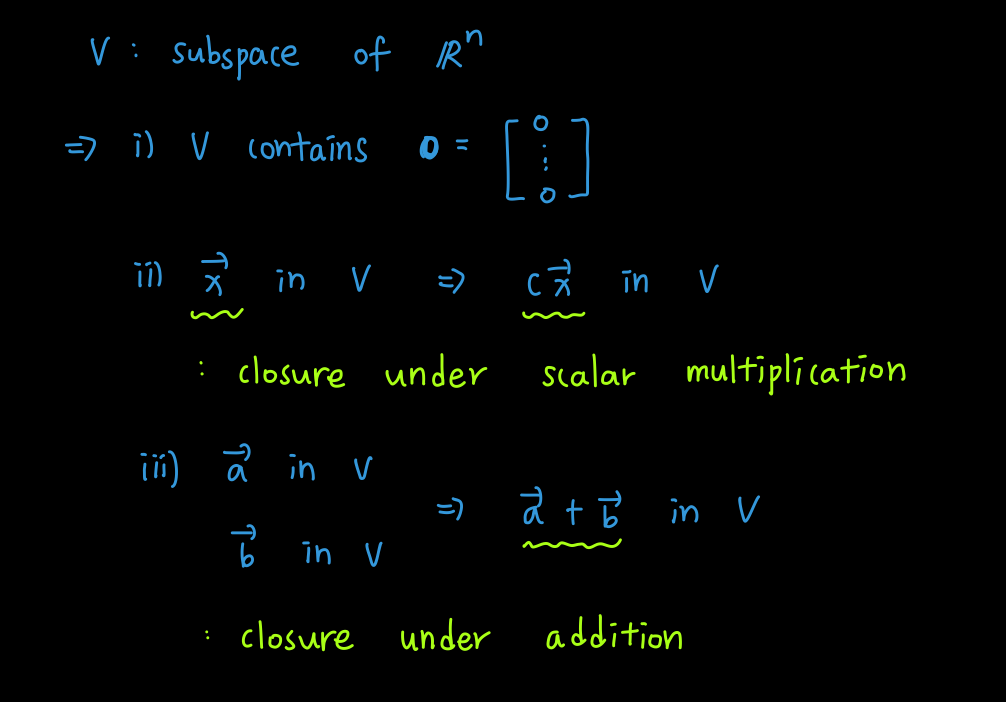 V : subspace of ℝⁿ
⇒ i) V contains 0 = [0 ⋮ 0]
ii) x⃗ in V ⇒ cx⃗ in V
: closure under scalar multiplication
iii) a⃗ in V
⇒ a⃗ + b⃗ in V
b⃗ in V
: closure under addition